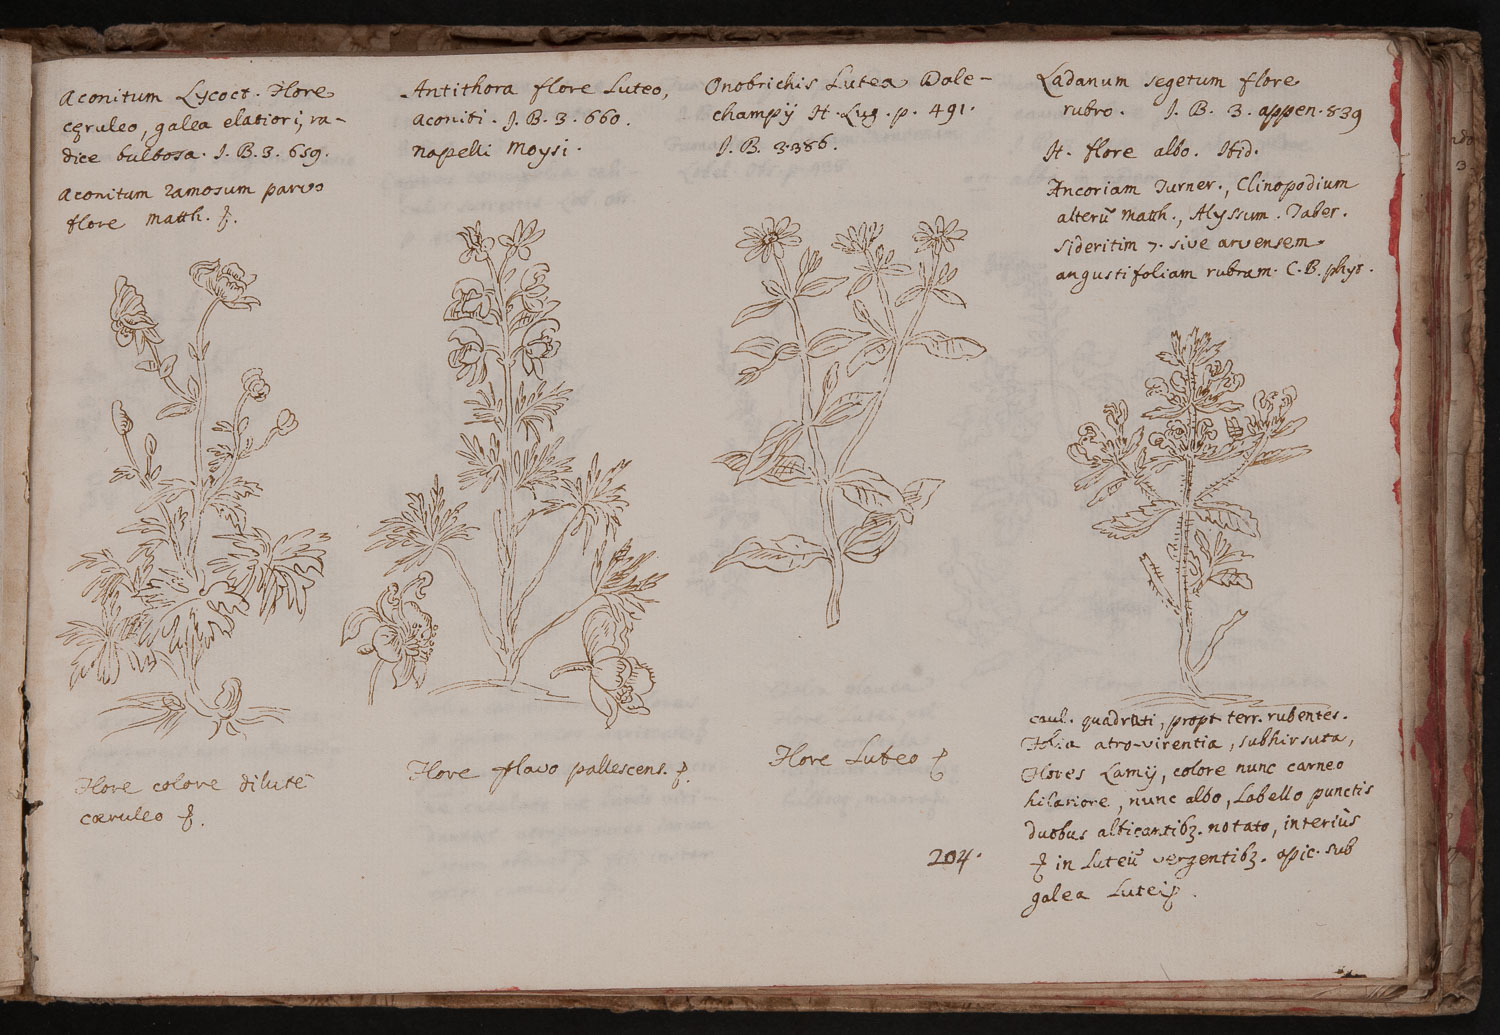 Aconitum Lycoct. Flore
cęruleo, galea elatiori, ra-
dice bulbosa. I. B. 3. 659.
Aconitum ramosum parvo
flore Matth.
Flore colore dilutè
cœruleo
Antithora flore Luteo,
aconiti. I. B. 3. 660.
napelli Moysi.
Flore flavo pallescens.
Onobrichis Lutea Dale-
champij H. Lug. p. 491.
I. B. 3. 386.
Flore Luteo
204.
Ladanum segetum flore
rubro. I. B. 3. appen. 839
It. flore albo. Ibid.
Ancoriam Turner., Clinopodium
alterũ Matth., Alyssum. Taber.
Sideritim 7. sive arvensem
angustifoliam rubram. C. B. phyt.
caul. quadrati, propt terr. rubentes.
Folia atro-virentia, subhirsuta,
Flores Lamij, colore nunc carneo
hilariore, nunc albo, Labello punctis
duobus albicantibꝫ. notato, interiùs
in Luteũ vergentibꝫ. apic. sub
galea Lutei